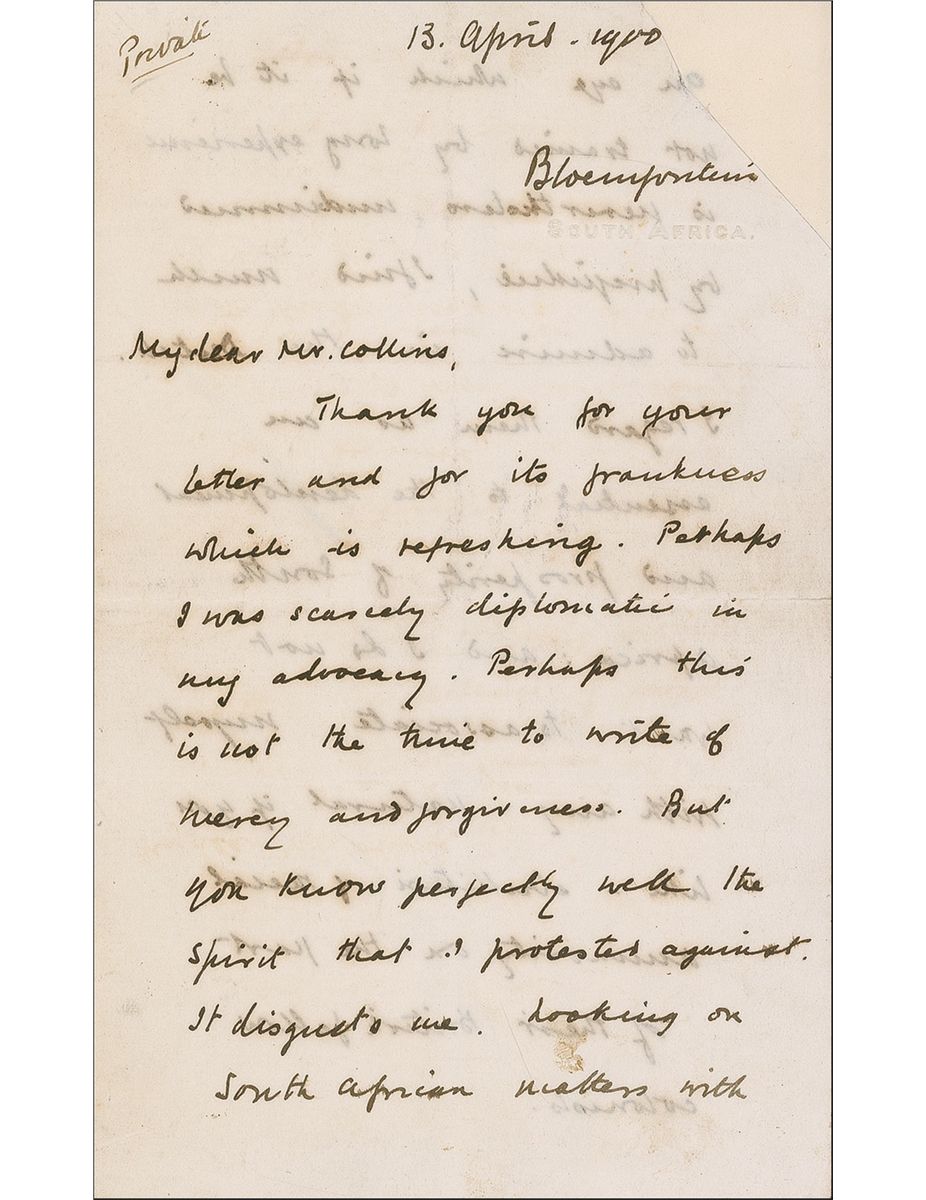 Private
13. April. 1900
Bloemfontein
SOUTH AFRICA.
My dear Mr. Collins,
Thank you for your
letter and for its frankness
which is refreshing. Perhaps
I was scarcely diplomatic in
my advocacy. Perhaps this
is not the time to write of
mercy and forgiveness. But
you know perfectly well the
spirit that I protested against.
It disgusts me. Looking on
South African matters with